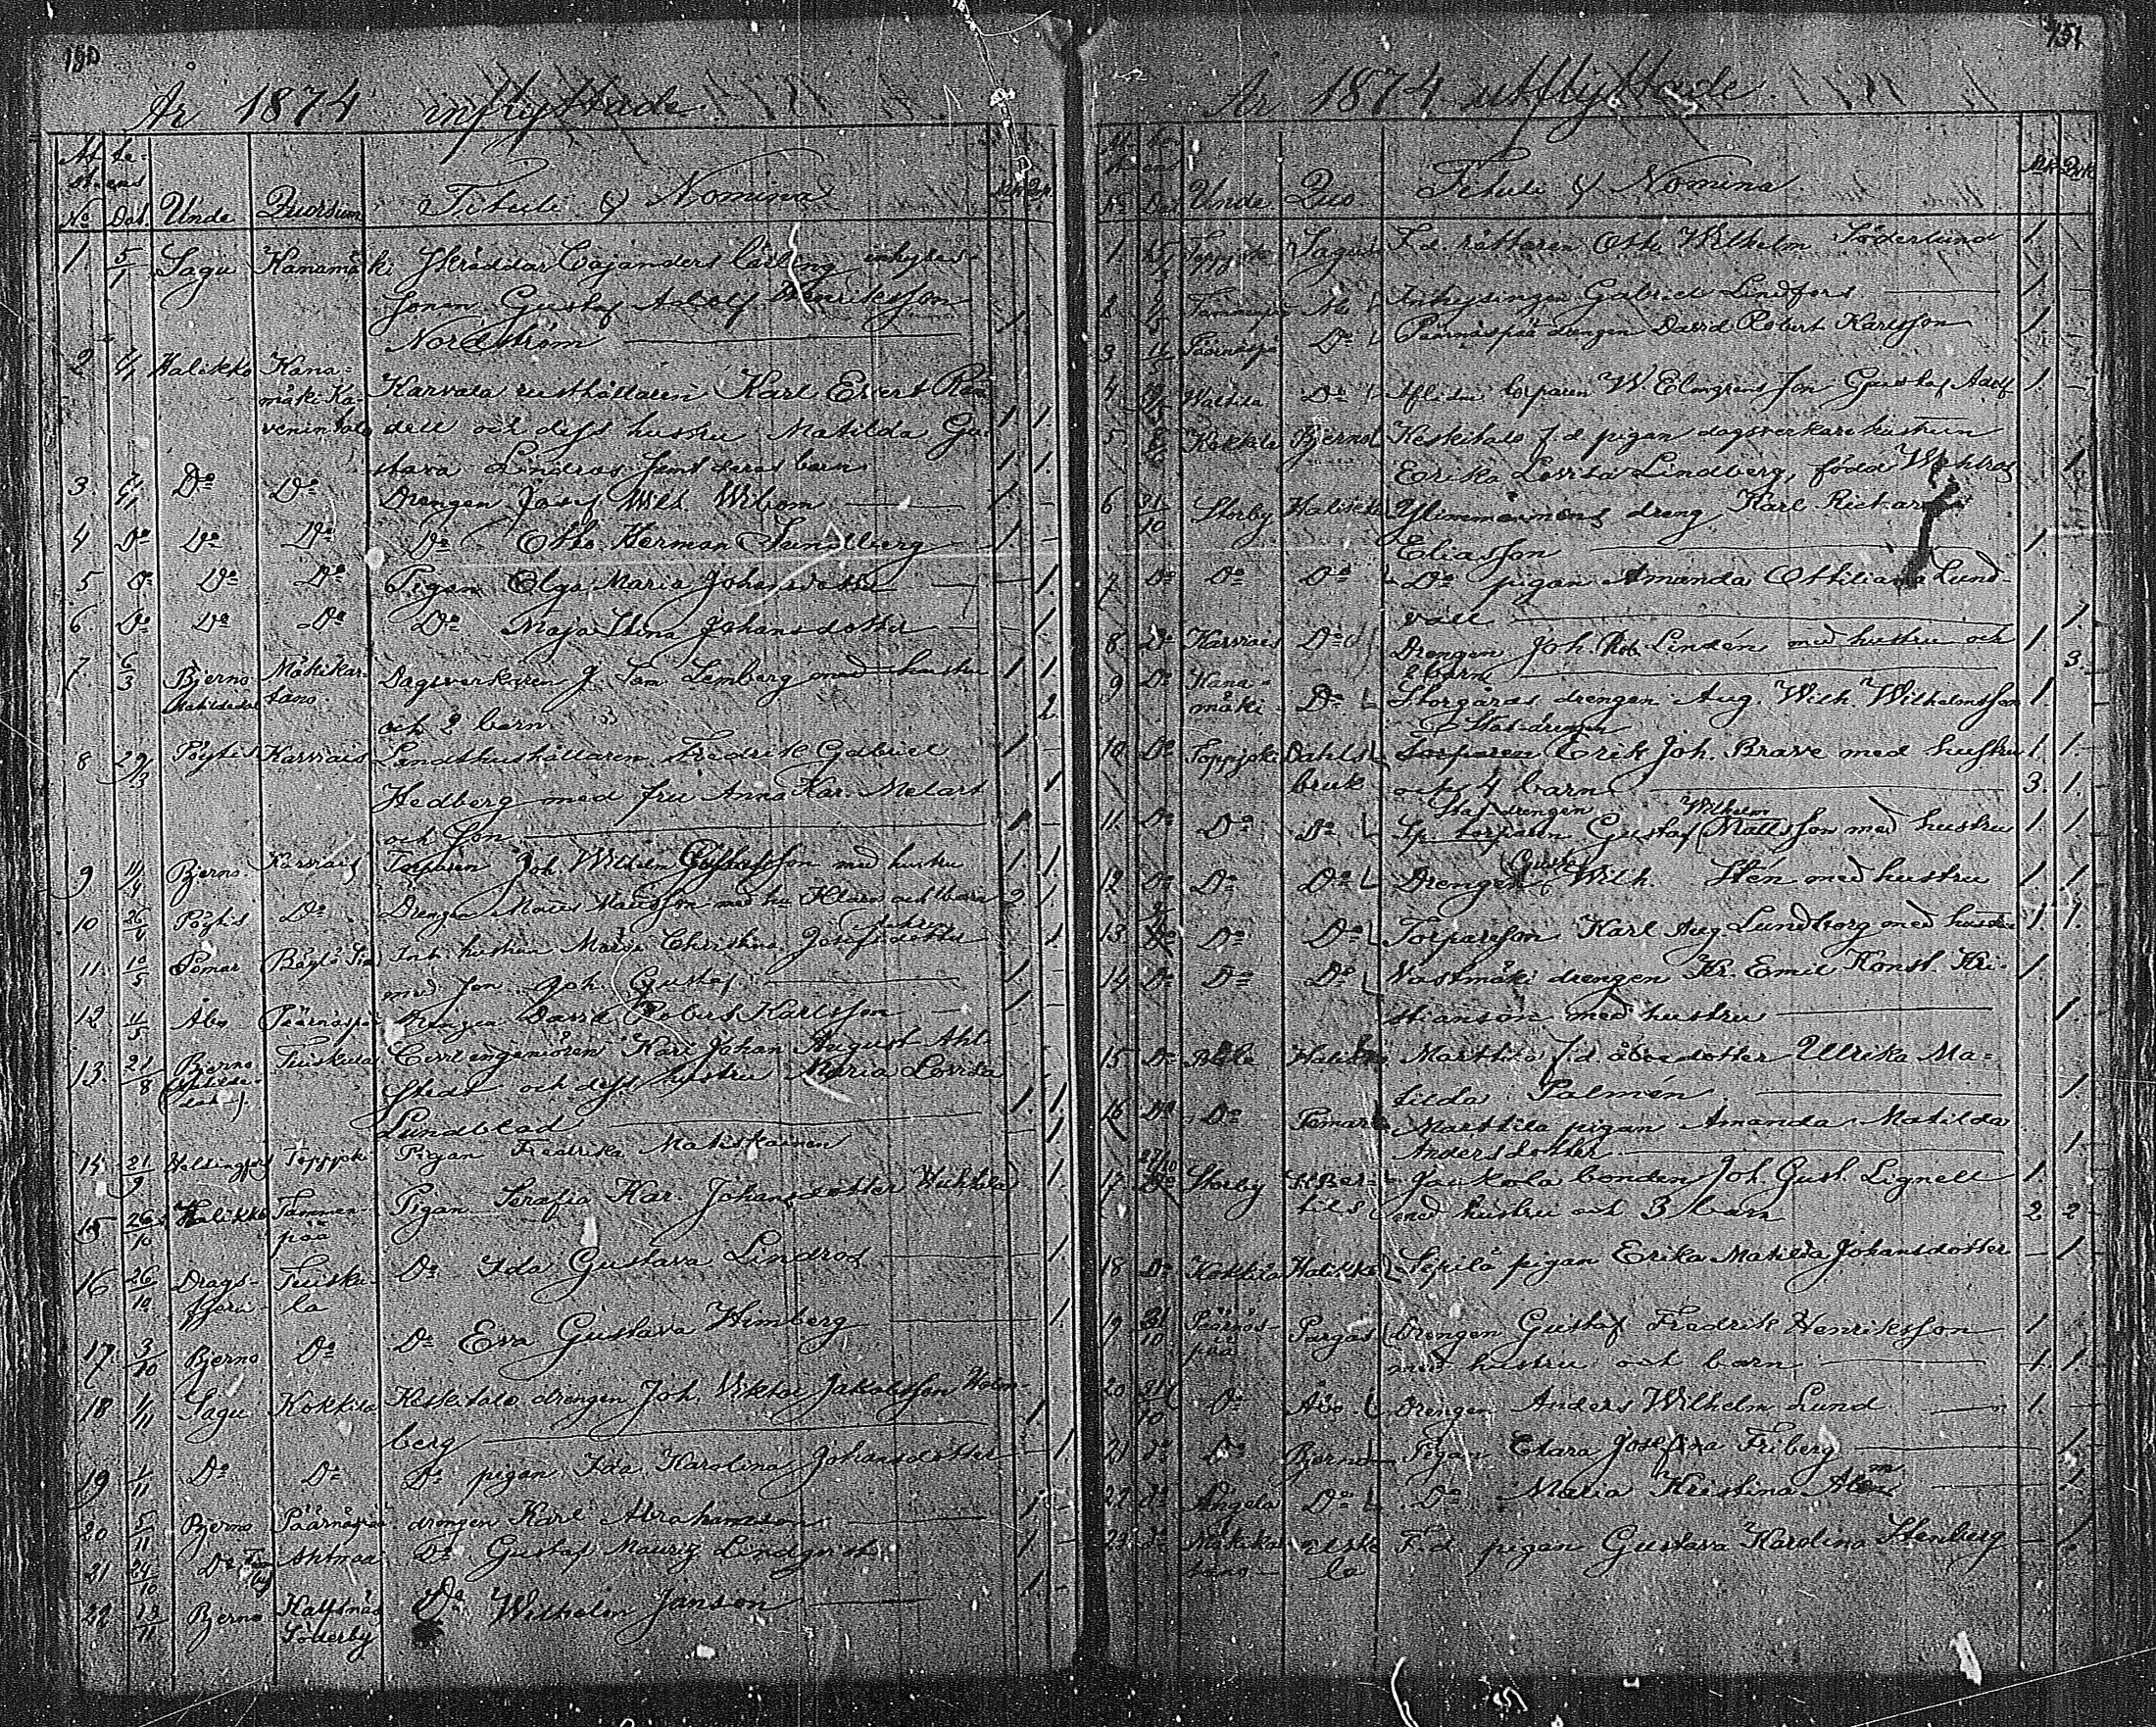 150
År 1874 inflyttade
Attestens
No Dat. Unde Quorsum Tituli & Nomina Mk. Qk.
1. 5/1 Sagu Kanamäki Skräddar Cajanders lärling inhyses
sonen Gustaf Adolf Henriksson
Nordström 1.
2 Halikko Kana-
mäki Ka- Karvala rusthållaren Karl Evert
dell och dess hustru Matilda Gu- 1 1
stava Lindros samt deras barn 1. 1.
3. Do Do Drengen Josef Wilh. Wibom 1. -
4 Do Do Do Do Otto Herman Sundberg 1 -
5 Do Do Do Pigan Olga Maria Johansdotter - 1.
6. Do Do Do Do Maja Stina Johansdotter - 1
7 6/3 Bjerno Matildedal Mäkikar-
tano Dagsverkaren J. Lemberg med hustru 1 1
och 2 barn 2
8 29/3 Pöytis Karviais Landthushållaren Fredrik Gabriel 1 -
Hedberg med fru Anna Kar. Metart 1
och son 1
9 11/4 Bjerno Karviais Torparen Joh. Wilhelm Gustafsson med hustru 1. 1.
10 26/4 Pöytis Do Drengen Mattsson med hu Klara och barn 2 1.
11. 10/5 Pemar Inh. hustrun Maria Christina Josefsdotter 1
med son Joh. Gustaf 1. -
12 11/5 Åbo Päärnäspää Drengen David Robert Karlsson 1 -
13. 21/8 Bjerno (Matilde-
dal) Tuiskula Civilengeniören Karl Johan August Ahl-
stedt och dess hustru Maria Lovisa
Lundblad 1. 1.
14. 21/9 Helsingfors Toppjoki Pigan Fredrika Matiskainen 1
15 26/10 Halikko Tammen-
pää Pigan Serafia Kar. Johansdotter 1.
16 26/10 Drags-
fjerd Tuisku-
la Do Ida Gustava Lindros 1.
17. 3/10 Bjerno Do Do Eva Gustava Himberg 1.
18 1/11 Sagu Kokkila Keskitalo drengen Joh. Viktor Jakobsson Holm-
berg 1.
19 1/11 Do Do Do pigan Ida Karolina Johansdotter 1.
20 5/11 Bjerno Päärnäspää drengen Karl Abrahamson 1. -
21 24/10 Do Ahtmaa Do Gustaf Mauritz Lindqvist 1 -
22 12/11 Bjerno Kalfsnäs
Söderby Do Wilhelm Janson 1 -
151
År 1874 utflyttade.
No Dat Unde Quo Tituli & Nomina. Mk Qk
1 Toppjoki Sagu F.d. rättaren Otto Wilhelm Söderlund 1.
2 Tammenpää Åbo Inhysingen Gabriel Lindfors 1. -
3 Päärnäspää Do Päärnäspää drengen David Robert Karlsson 1.
4. Do Aflidne torparen W Elmgrens son Gustaf Adolf 1 -
5. Kokkila Bjerno Keskitalo f.d pigan dagsverkarehustrun
Erika Lovisa Lindberg, född 1.
6 31/10 Storby Halikko dreng Karl Rickard
Eliasson 1
7 Do Do Do Do pigan Amanda Ottiliana Lund-
vall 1
8. Do Karviais Do Drengen Joh. Rob. Lindén med hustru och 1.
2 barn 3.
9 Do Kana-
mäki Do Storgårds drengen Aug. Wilh. Wilhelmsson 1.
Stat-drengen
10 Do Toppjoki Dahls-
bruk Torparen Erik Joh. Brave med hustru 1. 1.
och 4 barn 3. 1.
Stat-drengen Wilhelm
11. Do Do Do torparen Gustaf Mattsson med hustru 1 1
Gustaf
12 Do Do Do Drengen Wilh. Stén med hustru 1. 1
13 Do Do Do Torpareson Karl Aug. Lundborg med hustru 1. 1.
14 Do Do Do Vastmäki drengen Kr. Emil Konst. Kri- 1.
stianson med hustru 1.
15 Do Halikko Marttila f.d åboedotter Ullrika Ma-
tilda Palmén 1.
16 Do Do Pemar Marttila pigan Amanda Matilda
Andersdotter 1.
17 27/10 Storby St Ber-
tils Jaukola bonden Joh. Gust. Lignell 1.
med hustru och 3 barn 2 2
18 Do Kokkila Halikko Sepilä pigan Erika Matilda Johansdotter - 1
19 31/10 Päärnäs-
pää Pargas Drengen Gustaf Fredrik Henriksson 1
med hustru och barn 1. 1.
20 31/10 Do Åbo Drengen Anders Wilhelm Lund 1. -
21 Do Do Bjerno Pigan Clara Josefina Friberg 1.
22 Do Ångela Do Do Maria Kristina 1
23. Do Mäkikar-
tano F.d. pigan Gustava Karolina Stenberg - 1.